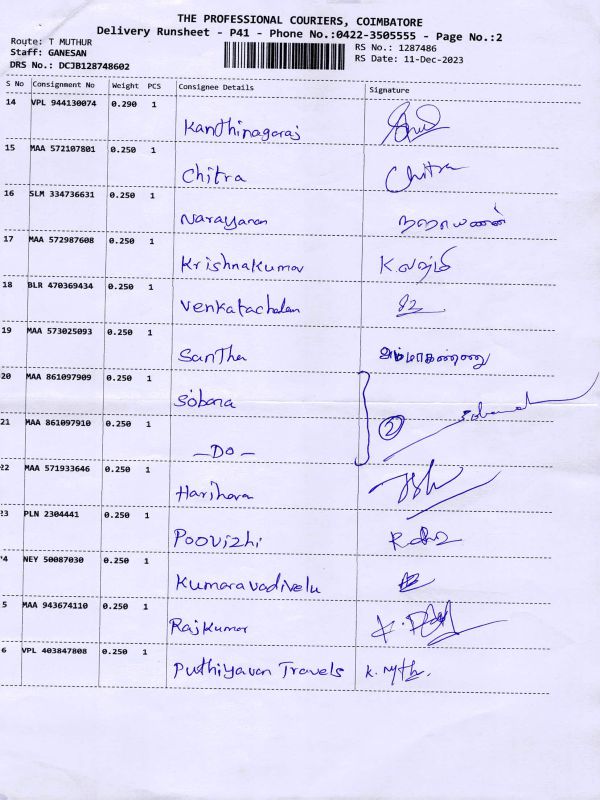 THE PROFESSIONAL COURIERS, COIMBATORE
Delivery Runsheet - P41 - Phone No.:0422-3505555 - Page No.:2
Route: T MUTHUR
RS No.: 1287486
Staff: GANESAN
RS Date: 11-Dec-2023
DRS No.: DCJB128748602
S No Consignment No Weight PCS Consignee Details Signature
14 VPL 944130074 0.290 1
Kanthinagaraj
15 MAA 572107801 0.250 1
Chitra Chitra
16 SLM 334736631 0.250 1
Narayanan நாராயணன்
17 MAA 572987608 0.250 1
Krishnakumar
18 BLR 470369434 0.250 1
Venkatachalam
19 MAA 573025093 0.250 1
Santha
20 MAA 861097909 0.250 1
Sobana
21 MAA 861097910 0.250 1
2
- Do -
22 MAA 571933646 0.250 1
Harihara
23 PLN 2304441 0.250 1
Poovizhi
4 NEY 50087030 0.250 1
Kumaravadivelu
5 MAA 943674110 0.250 1
Rajkumar
6 VPL 403847808 0.250 1
Puthiyavan Travels